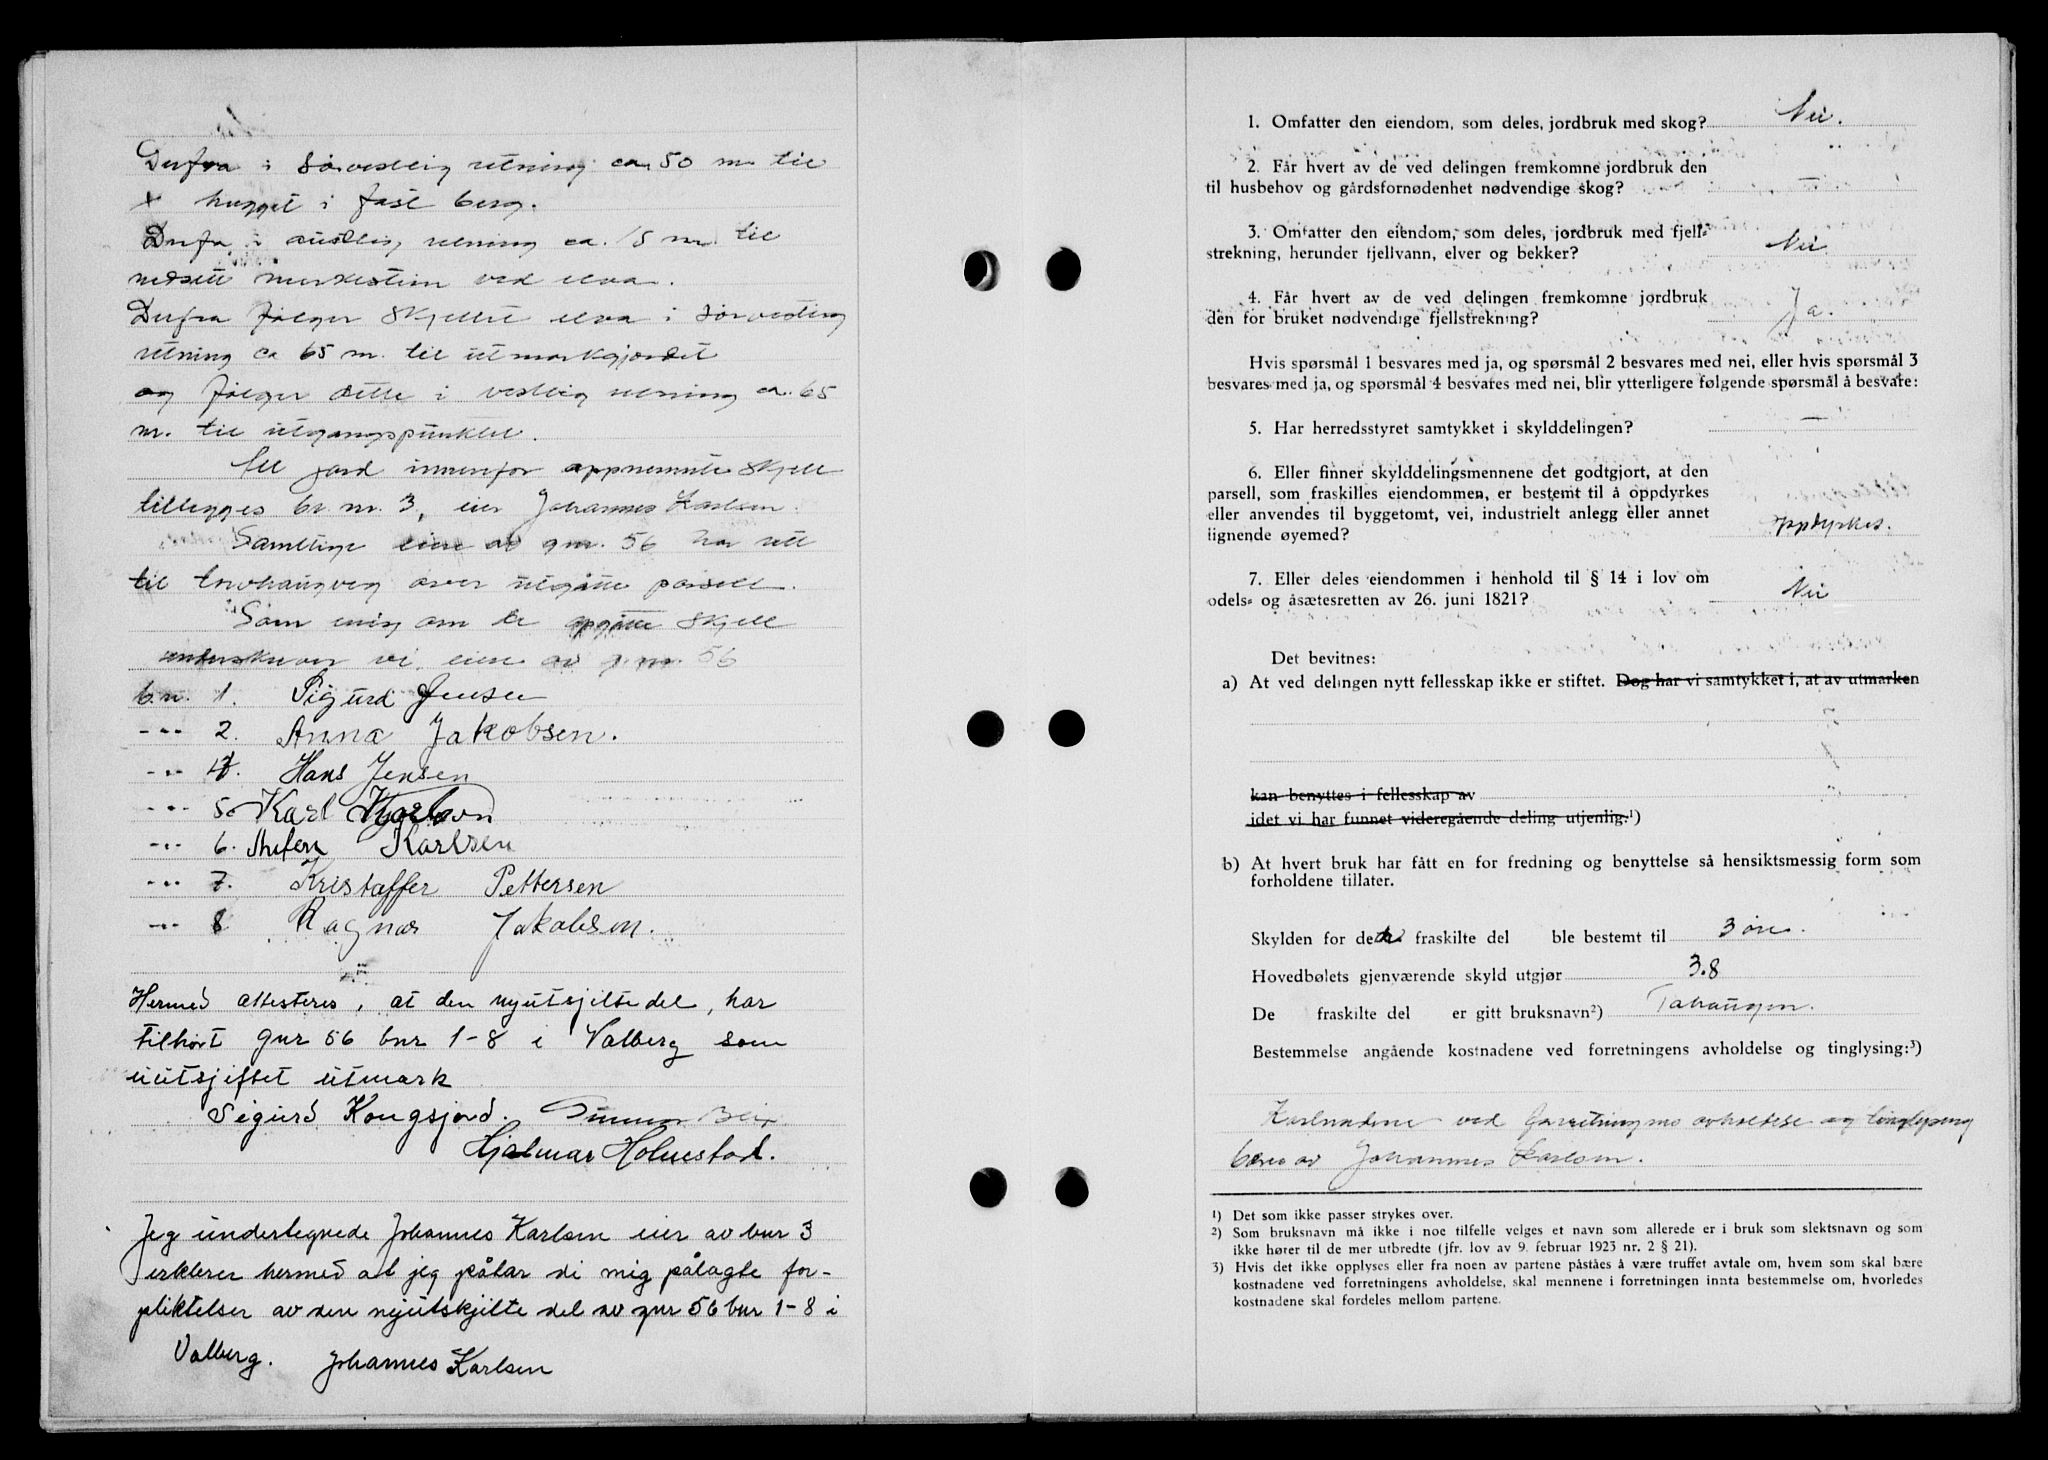 Derfra i sørvestlig retning ca 50 m til
x hugget i fast berg.
Derfra i austlig retning ca. 15 m til
nedsett merkestein ved elva.
Derfra følger skjellet elva i sørvestlig
retning ca 65 m. til utmarkgjerdet
og følger dette i vestlig retning ca. 65
m. til utgangspunktet.
All jord innenfor oppnemnte skjell
tillegges br nr. 3, eier Johannes Karlsen.
Samtlige eiere av gnr. 56 har rett
til torvhaugveg over utgåtte parsell.
Som enig om de opgåtte skjell
underskriver vi, eiere av g.nr. 56
b.n. 1. Sigurd Jensen
-"- 2. Anna Jakobsen.
-"- 4. Hans Jensen
-"- 5. Karl Karlsen
-"- 6. Karlsen
-"- 7. Kristoffer Pettersen
-"- 8 Ragnar Jakobsen.
Hermed attesteres, at den nyutsjilte del, har
tilhørt gnr 56 bnr 1-8 i Valberg som
uutsjiftet utmark
Sigurd Kongsjord. Gunnar
Hjalmar Holmstad.
Jeg undertegnede Johannes Karlsen eier av bnr 3
erklerer hermed at jeg påtar di mig pålagte for-
pliktelser av den nyutskjilte del av gnr 56 bnr 1-8 i
Valberg. Johannes Karlsen
1. Omfatter den eiendom, som deles, jordbruk med skog? Nei.
2. Får hvert av de ved delingen fremkomne jordbruk den
til husbehov og gårdsfornødenhet nødvendige skog? —
3. Omfatter den eiendom, som deles, jordbruk med fjell-
strekning, herunder fjellvann, elver og bekker? Nei.
4. Får hvert av de ved delingen fremkomne jordbruk
den for bruket nødvendige fjellstrekning? Ja.
Hvis spørsmål 1 besvares med ja, og spørsmål 2 besvares med nei, eller hvis spørsmål 3
besvares med ja, og spørsmål 4 besvares med nei, blir ytterligere følgende spørsmål å besvare:
5. Har herredsstyret samtykket i skylddelingen? —
6. Eller finner skylddelingsmennene det godtgjort, at den
parsell, som fraskilles eiendommen, er bestemt til å oppdyrkes
eller anvendes til byggetomt, vei, industrielt anlegg eller annet
lignende øyemed? oppdyrkes.
7. Eller deles eiendommen i henhold til § 14 i lov om
odels- og åsætesretten av 26. juni 1821? Nei
Det bevitnes:
a) At ved delingen nytt fellesskap ikke er stiftet. Dog har vi samtykket i, at av utmarken
kan benyttes i fellesskap av
idet vi har funnet videregående deling utjenlig.¹)
b) At hvert bruk har fått en for fredning og benyttelse så hensiktsmessig form som
forholdene tillater.
Skylden for den fraskilte del ble bestemt til 3 øre.
Hovedbølets gjenværende skyld utgjør 3.8
De fraskilte del er gitt bruksnavn²) Tohaugen.
Bestemmelse angående kostnadene ved forretningens avholdelse og tinglysing:³)
Kostnadene ved forretningens avholdelse og tinglysing
bæres av Johannes Karlsen.
¹) Det som ikke passer strykes over.
²) Som bruksnavn må ikke i noe tilfelle velges et navn som allerede er i bruk som slektsnavn og som
ikke hører til de mer utbredte (jfr. lov av 9. februar 1923 nr. 2 § 21).
3) Hvis det ikke opplyses eller fra noen av partene påståes å være truffet avtale om, hvem som skal bære
kostnadene ved forretningens avholdelse, skal mennene i forretningen innta bestemmelse om, hvorledes
kostnadene skal fordeles mellom partene.